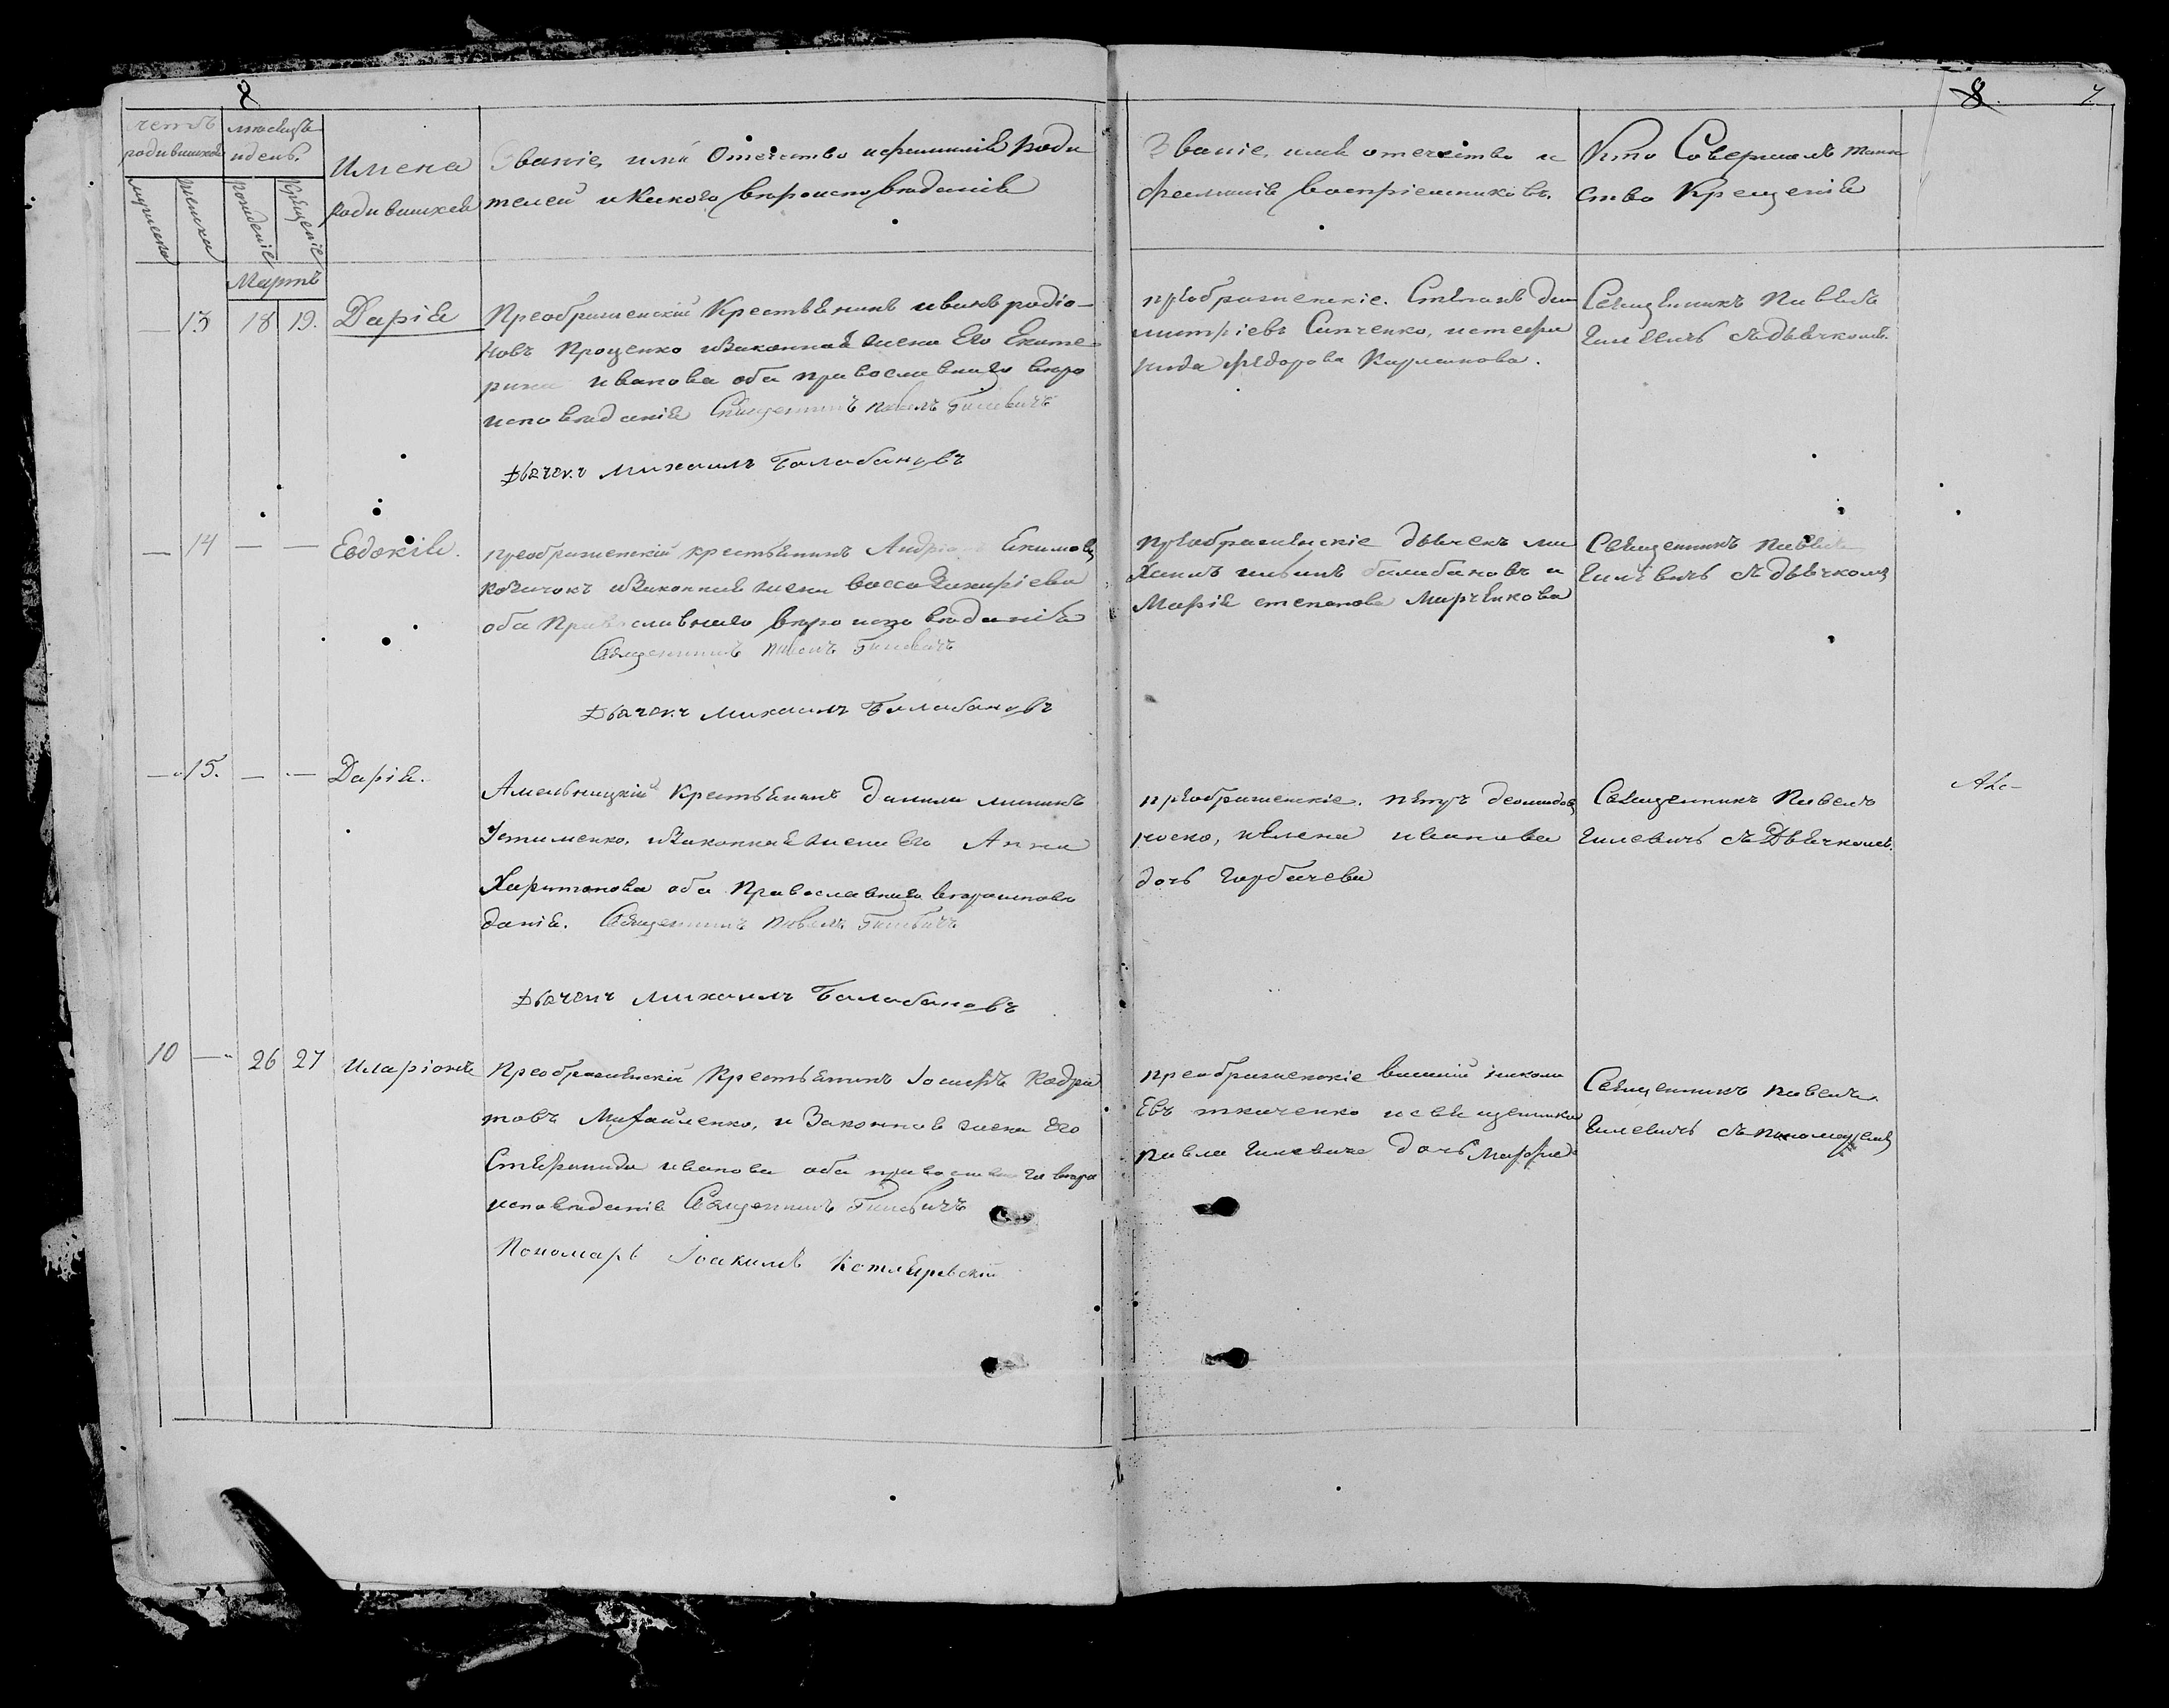 8
8.
7.
счетъ родившихся
мѣсяцъ и день.
Имена родившихся
Званіе, имя Отечество и фамилія Роди
телей и Какого вѣроисповѣданія
Званіе, имя отечество и
фамилія воспріемниковъ.
Кто Совершалъ таин
ство Крещенія
мужеска
женска
рожденіе
крещеніе
Мартъ
— 13 18 19. Дарія
Преображенскій Крестьянинъ иванъ родіо-
новъ Проценко изаконная жена Его Екате
рина иванова оба православнаго вѣро
исповѣданія Священникъ Павелъ Гилевичъ
Дьячекъ Михаилъ Балабановъ
преображенскіе. Степанъ ди
митріевъ Сипченко, истефа
нида федорова Курманова.
Священникъ Павелъ
Гилевичъ съ дьячкомъ.
— 14 — — Евдокія.
преображенскій крестьянинъ Екимовъ
изаконная жена васса Захаріева
оба Православнаго вѣро исповѣданія
Священникъ Павелъ Гилевичъ
Дьячекъ Михаилъ Балабановъ
преображенскіе дьячекъ ми
хаилъ ильинъ балабановъ и
Марія степанова Марченкова
Священникъ Павелъ
Гилевичъ съ дьячкомъ
— 15. — — Дарія.
Амельницкій Крестьянинъ данила мининъ
Устименко, изаконная жена его Анна
Харитонова оба Православнаго вѣроисповѣ
данія. Священникъ Павелъ Гилевичъ
Дьячекъ Михаилъ Балабановъ
преображенскіе. петръ деомидовъ
иелена иванова
дочь Горбачева
Священникъ Павелъ
Гилевичъ съ Дьячкомъ.
10 — 26 27 Иларіонъ
Преображенскій Крестьянинъ Іосифъ Кодра
товъ Михайленко, и Законная жена Его
Стефанида иванова оба православнаго вѣро
исповѣданія Священникъ Гилевичъ
Пономарь Іоакимъ Котляревскій
преображенскіе василій никола
евъ ткаченко и священника
павла Гилевича дочь
Священникъ Павелъ
Гилевичъ съ пономаремъ